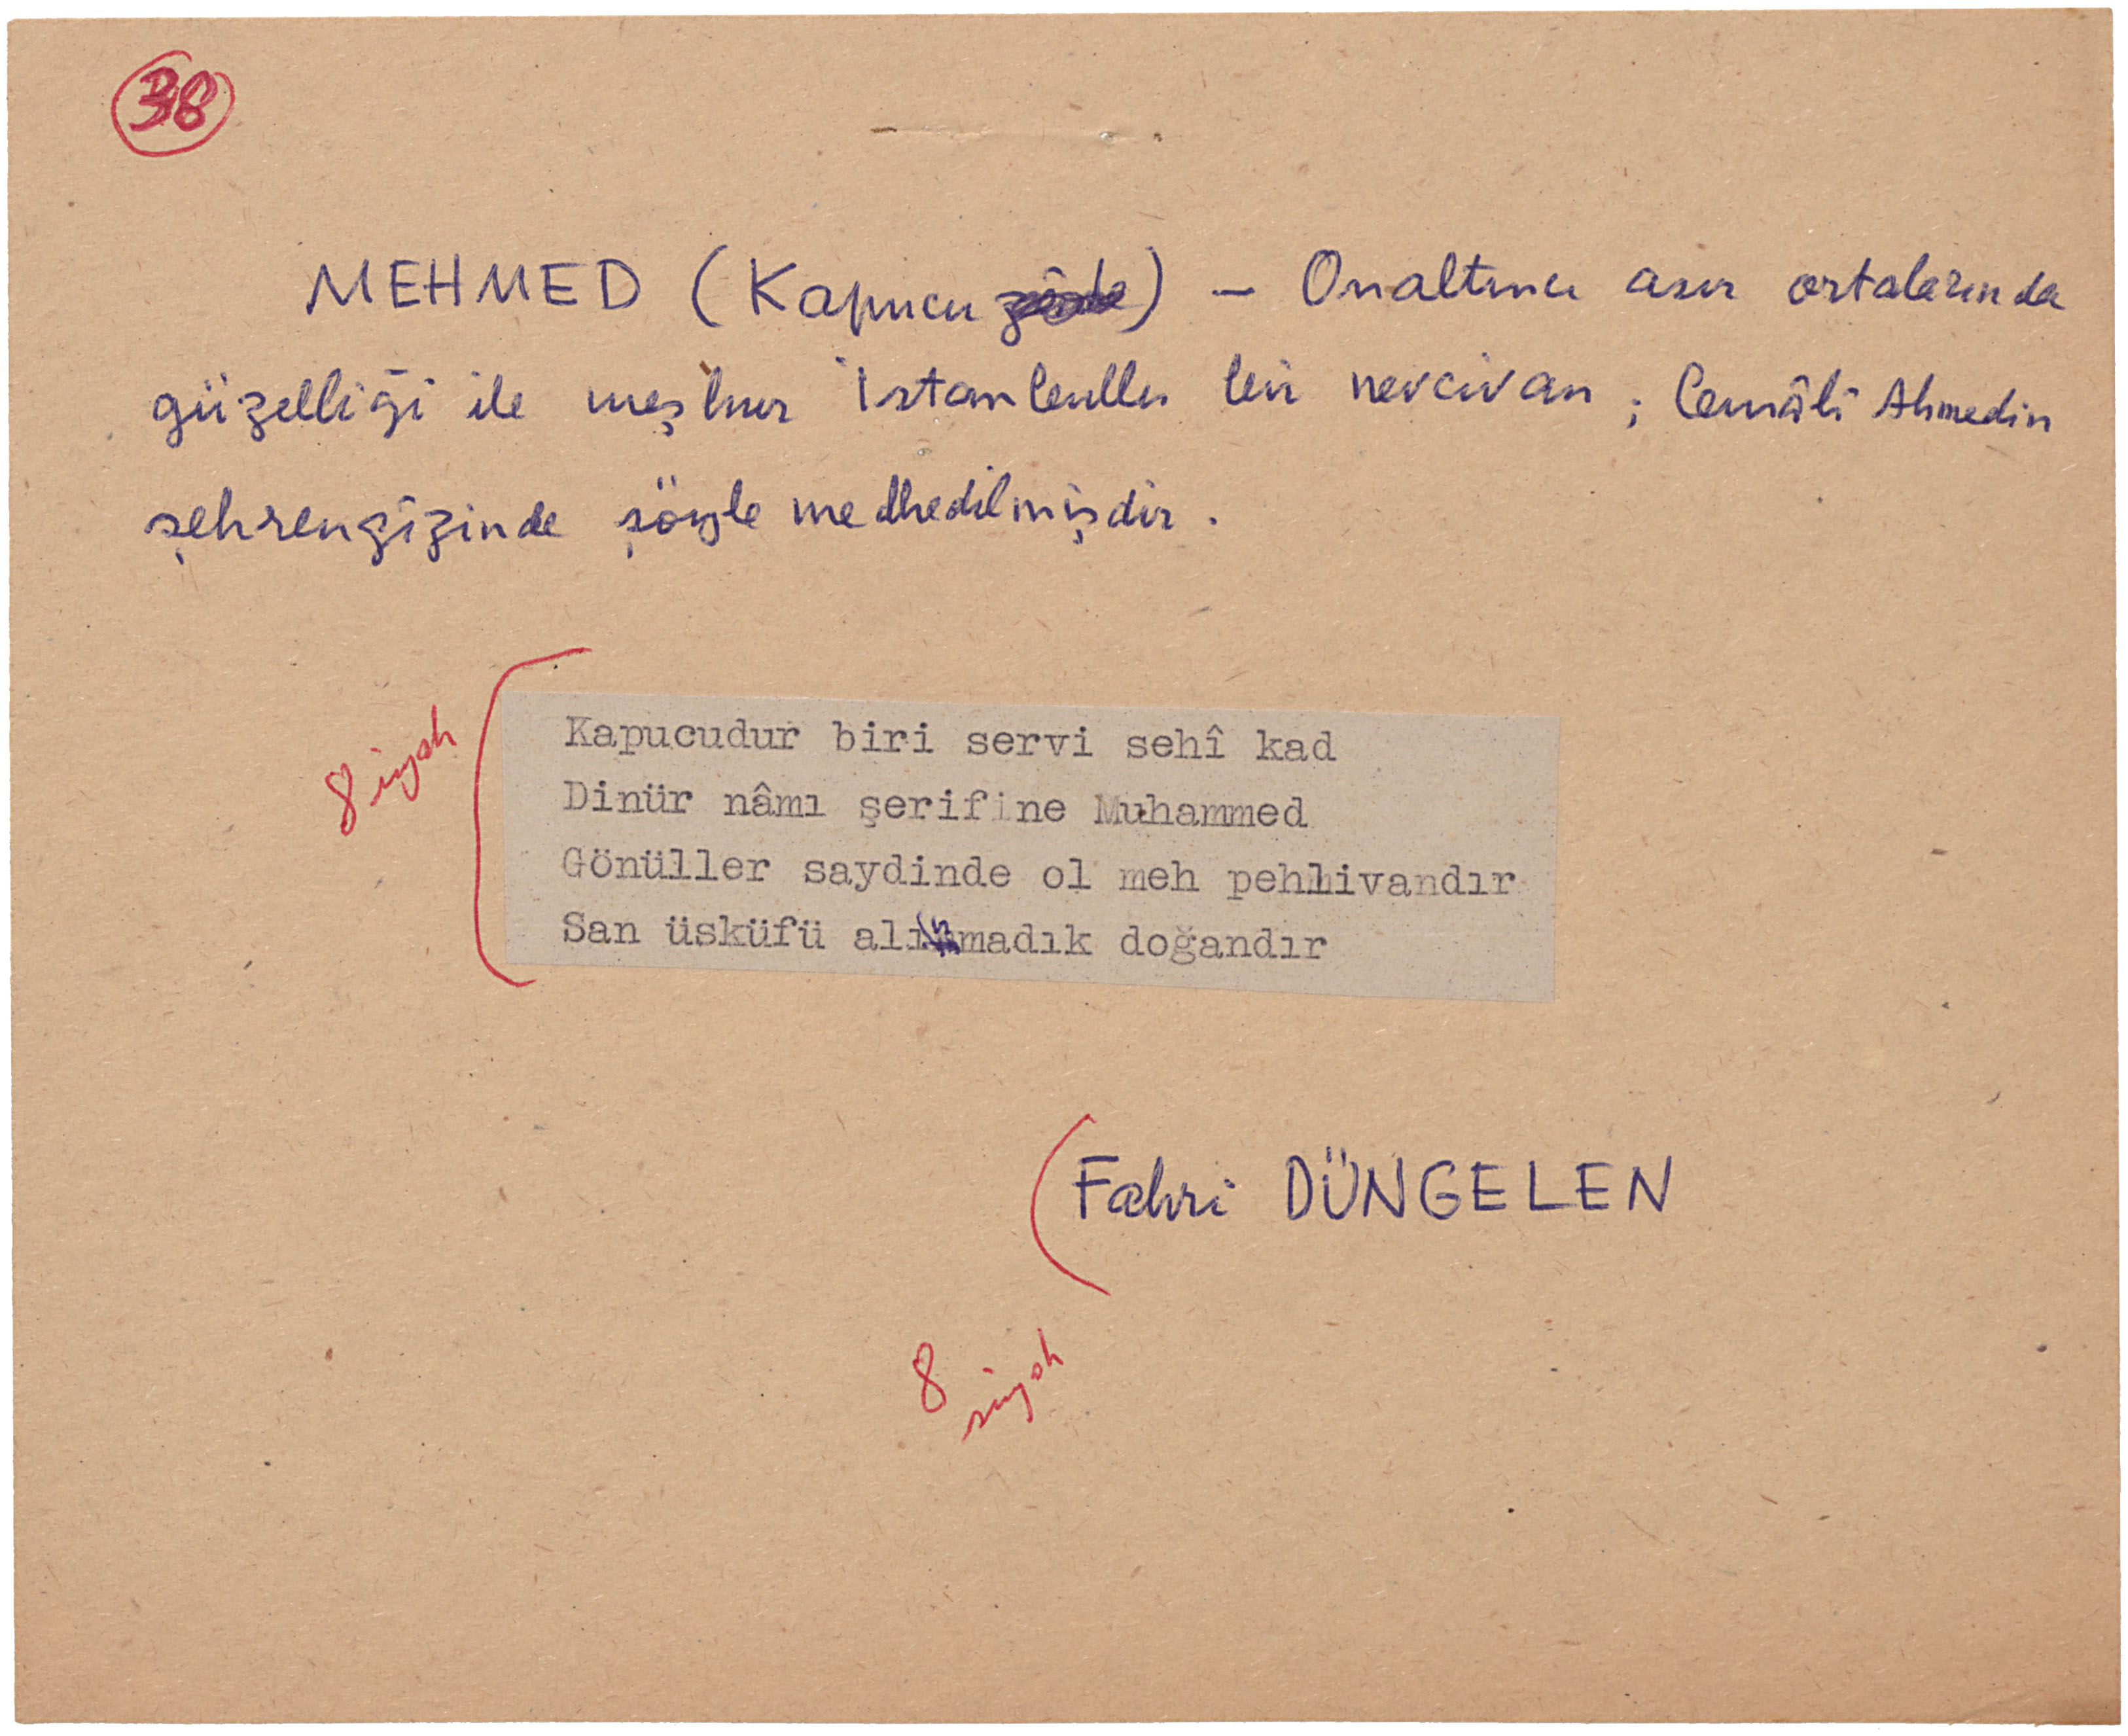 38
MEHMED (Kapucu) — Onaltıncı asır ortalarında
güzelliği ile meşhur İstanbullu bir nevcivan ; Cemâlî Ahmedin
şehrengîzinde şöyle medhedilmişdir .
8 siyah
Kapucudur biri servi sehî kad
Dinür nâmı şerifine Muhammed
Gönüller saydinde ol meh pehlivandır
San üsküfü alınmadık doğandır
Fahri DÜNGELEN
8 siyah